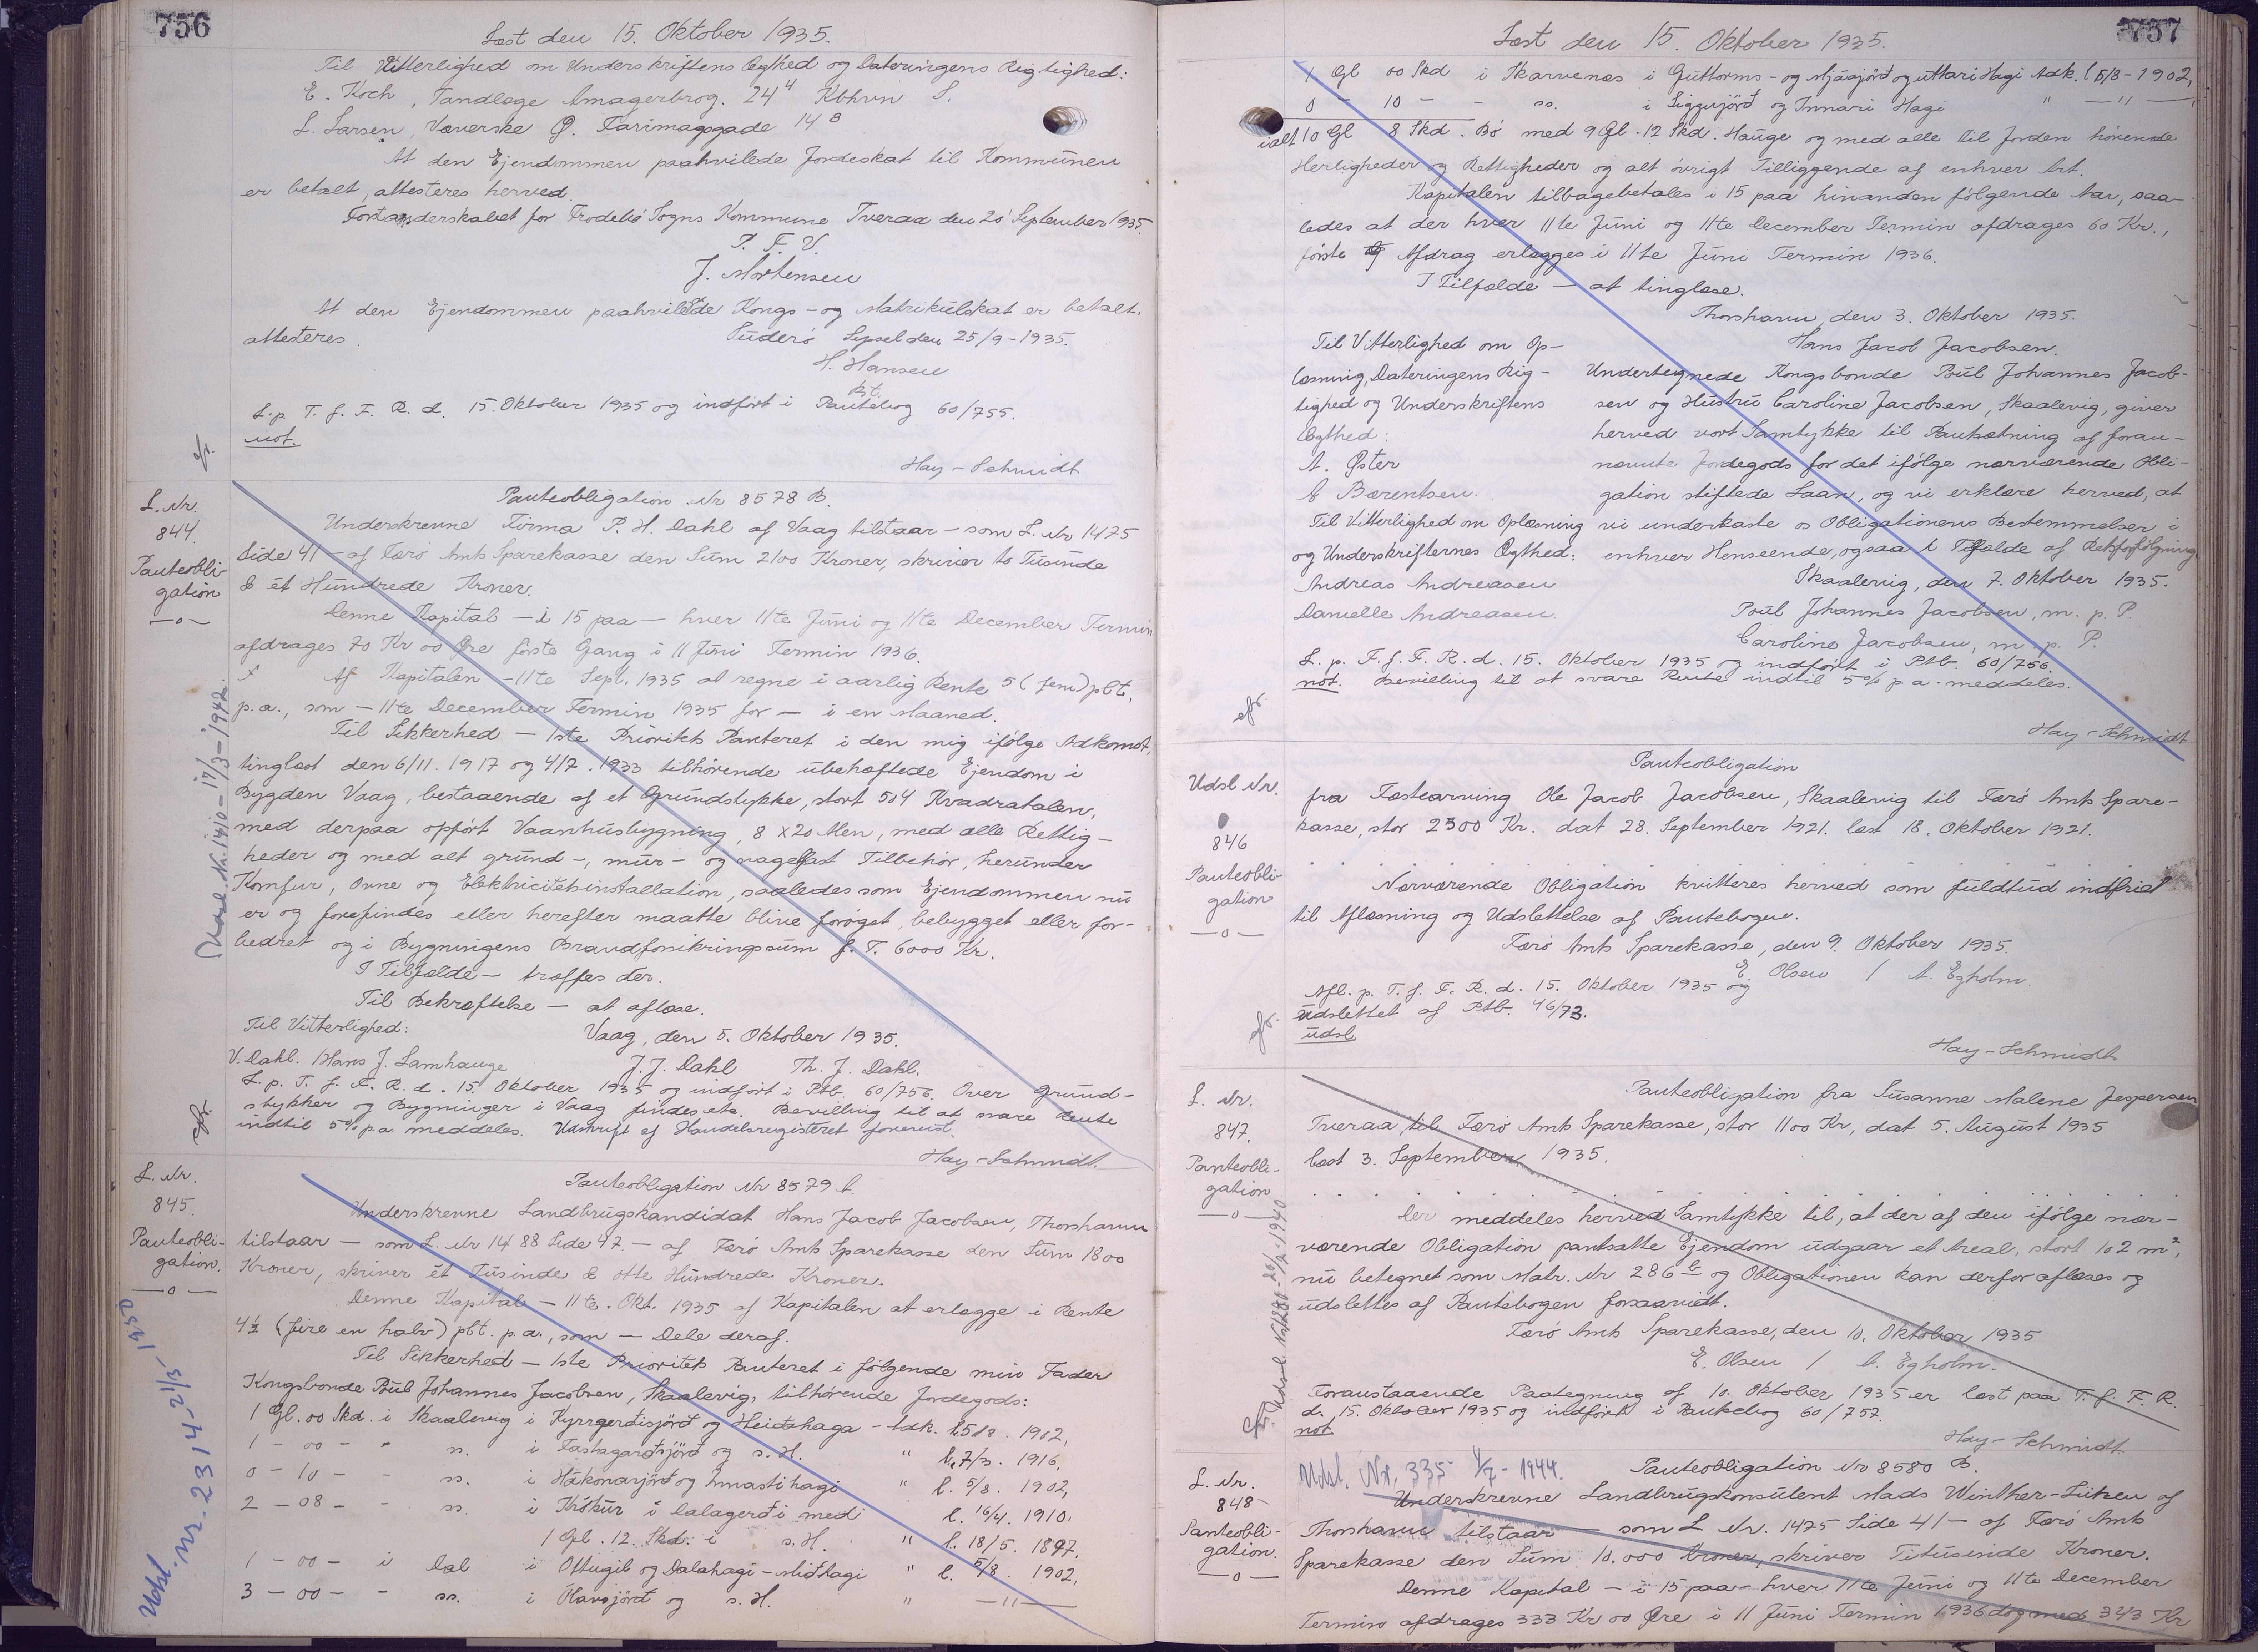 756
Læst den 15. Oktober 1935.
Til Vitterlighed om Underskriftens Ægthed og Dateringens Rigtighed:
E. Koch, Tandlæge Amagerbrog. 24 4 Kbhvn S.
L. Larsen, Væverske Ø. Farimagsgade 14 B
At den Ejendommen paahvilede Jordeskat til Kommunen
er betalt, attesteres herved.
Forstanderskabet for Frodebø Sogns Kommune Tveraa den 20 September 1935.
P. F. V.
J. Mortensen
At den Ejendommen paahvilede Kongs- og Matrikulskat er betalt,
attesteres. Suderø Syssel den 25/9-1935.
H. Hansen
kst.
L. p. T. f. F. R. d. 15. Oktober 1935 og indført i Pantebog 60/755.
not.
Hay-Schmidt
L. Nr.
844.
Panteobli-
gation
—o—
Panteobligation Nr 8578 B.
Underskrevne Firma P. H. Dahl af Vaag tilstaar — som L. Nr 1475
Side 41 — af Færø Amts Sparekasse den Sum 2100 Kroner, skriver to Tusinde
& ét Hundrede Kroner.
Denne Kapital — i 15 paa — hver 11te Juni og 11te December Termin
afdrages 70 Kr 00 Øre første Gang i 11 Juni Termin 1936.
Af Kapitalen — 11te Sept. 1935 at regne i aarlig Rente 5 (fem) pCt.
p.a., som — 11te December Termin 1935 for — i en Maaned.
Til Sikkerhed — 1ste Prioritets Panteret i den mig ifølge Adkomst,
tinglæst den 6/11. 1917 og 4/7. 1933 tilhørende ubehæftede Ejendom i
Bygden Vaag, bestaaende af et Grundstykke, stort 504 Kvadratalen,
med derpaa opført Vaanhusbygning, 8 x 20 Alen, med alle Rettig-
heder og med alt grund-, mur- og nagelfast Tilbehør, herunder
Komfur, Ovne og Elektricitetsinstallation, saaledes som Ejendommen nu
er og forefindes eller herefter maatte blive forøget, bebygget eller for-
bedret og i Bygningens Brandforsikringssum f. T. 6000 Kr.
I Tilfælde — træffes der.
Til Bekræftelse — at aflæse.
Til Vitterlighed: Vaag, den 5. Oktober 1935.
V. Dahl. / Hans J. Lamhauge J. J. Dahl Th. J. Dahl.
L. p. T. f. F. R. d. 15. Oktober 1935 og indført i Ptb. 60/756. Over Grund-
stykker og Bygninger i Vaag findes etc. Bevilling til at svare Rente
indtil 5% p.a. meddeles. Udskrift af Handelsregisteret forevist.
Hay-Schmidt.
Udsl. Nr. 1410 - 17/3 - 1942.
L. Nr.
845.
Panteobli-
gation.
—o—
Panteobligation Nr 8579 b.
Underskrevne Landbrugskandidat Hans Jacob Jacobsen, Thorshavn
tilstaar — som L. Nr 1488 Side 47 — af Færø Amts Sparekasse den Sum 1800
Kroner, skriver ét Tusinde & otte Hundrede Kroner.
Denne Kapital — 11te. Okt. 1935 af Kapitalen at erlægge i Rente
4½ (fire en halv) pCt. p.a., som — Dele deraf.
Til Sikkerhed — 1ste Prioritets Panteret i følgende min Fader
Kongsbonde Poul Johannes Jacobsen, Skaalevig, tilhørende Jordegods:
1 Gl. 00 Skd. i Skaalevig i Kyrrgerdisjörð og Heiðahaga - Adk. l. 5/8. 1902,
1 - 00 - " ss. i Fastagarðsjörð og s. H. " l. 7/3. 1916,
0 - 10 - - ss. i Hákonarjörð og Innastihagi " l. 5/8. 1902,
2 - 08 - - ss. i Krókur í Dalagerði med l. 16/4. 1910,
1 Gl. 12. Skd. i s. H. " l. 18/5. 1897,
1 - 00 - i Dal i Ottugil og Dalahagi - Miðhagi " l. 5/8. 1902,
3 - 00 - - ss. i Olavsjörð og s. H. " —"—
Udsl. Nr. 2314 - 21/3 - 1950
757
Læst den 15. Oktober 1935.
1 Gl 00 Skd i Skarvenes i Guttorms- og Mjásjörð og uttari Hagi Adk. l. 5/8-1902,
0 - 10 - - ss. i Siggujörð og Innari Hagi " —"—
ialt 10 Gl 8 Skd. Bø med 9 Gl. 12 Skd. Hauge og med alle til Jorden hørende
Herligheder og Rettigheder og alt øvrigt Tilliggende af enhver Art.
Kapitalen tilbagebetales i 15 paa hinanden følgende Aar, saa-
ledes at der hver 11te Juni og 11te December Termin afdrages 60 Kr.,
første Afdrag erlægges i 11te Juni Termin 1936.
I Tilfælde — at tinglæse.
Thorshavn, den 3. Oktober 1935.
Hans Jacob Jacobsen.
Til Vitterlighed om Op-
læsning, Dateringens Rig-
tighed og Underskriftens
Ægthed:
A. Øster
E Bærentsen.
Undertegnede Kongsbonde Poul Johannes Jacob-
sen og Hustru Caroline Jacobsen, Skaalevig, giver
herved vort Samtykke til Pantsætning af foran-
nævnte Jordegods for det ifølge nærværende Obli-
gation stiftede Laan, og vi erklære herved, at
vi underkaste os Obligationens Bestemmelser i
enhver Henseende, ogsaa i Tilfælde af Retsforfølgning
Til Vitterlighed om Oplæsning
og Underskrifternes Ægthed:
Andreas Andreasen
Danielle Andreasen.
Skaalevig, den 7. Oktober 1935.
Poul Johannes Jacobsen, m. p. P.
Caroline Jacobsen, m. p. P.
L. p. T. f. F. R. d. 15. Oktober 1935 og indført i Ptb. 60/756.
not. Bevilling til at svare Rente indtil 5% p.a. meddeles.
Hay-Schmidt
Udsl Nr.
846
Panteobli-
gation
—o—
Panteobligation
fra Fæstearving Ole Jacob Jacobsen, Skaalevig til Færø Amts Spare-
kasse, stor 2500 Kr. dat 28. September 1921. læst 18. Oktober 1921.
Nærværende Obligation kvitteres herved som fuldtud indfriet
til Aflæsning og Udslettelse af Pantebogen.
Færø Amts Sparekasse, den 9. Oktober 1935.
E. Olsen / A. Egholm.
Afl. p. T. f. F. R. d. 15. Oktober 1935 og
udslettet af Ptb. 46/73.
udsl
Hay-Schmidt
L. Nr.
847.
Panteobli-
gation
—o—
Panteobligation fra Susanne Malene Jespersen
Tveraa, til Færø Amts Sparekasse, stor 1100 Kr, dat 5. August 1935
læst 3. September 1935.
Der meddeles herved Samtykke til, at der af den ifølge nær-
værende Obligation pantsatte Ejendom udgaar et Areal, stort 102 m²,
nu betegnet som Matr. Nr 286 b og Obligationen kan derfor aflæses og
udslettes af Pantebogen forsaavidt.
Færø Amts Sparekasse, den 10. Oktober 1935
E. Olsen / A. Egholm.
Foranstaaende Paategning af 10. Oktober 1935 er læst paa T. f. F. R.
d. 15. Oktober 1935 og indført i Pantebog 60/757.
not.
Hay-Schmidt
L. Nr.
848
Panteobli-
gation.
—o—
Udsl. Nr. 335 1/7 - 1944.
Panteobligation Nr 8580 B.
Underskrevne Landbrugskonsulent Mads Winther-Lützen af
Thorshavn tilstaar — som L Nr. 1475 Side 41 — af Færø Amts
Sparekasse den Sum 10.000 Kroner, skriver Titusinde Kroner.
Denne Kapital — i 15 paa — hver 11te Juni og 11te December
Termin afdrages 333 Kr 00 Øre i 11 Juni Termin 1936 dog med 343 Kr